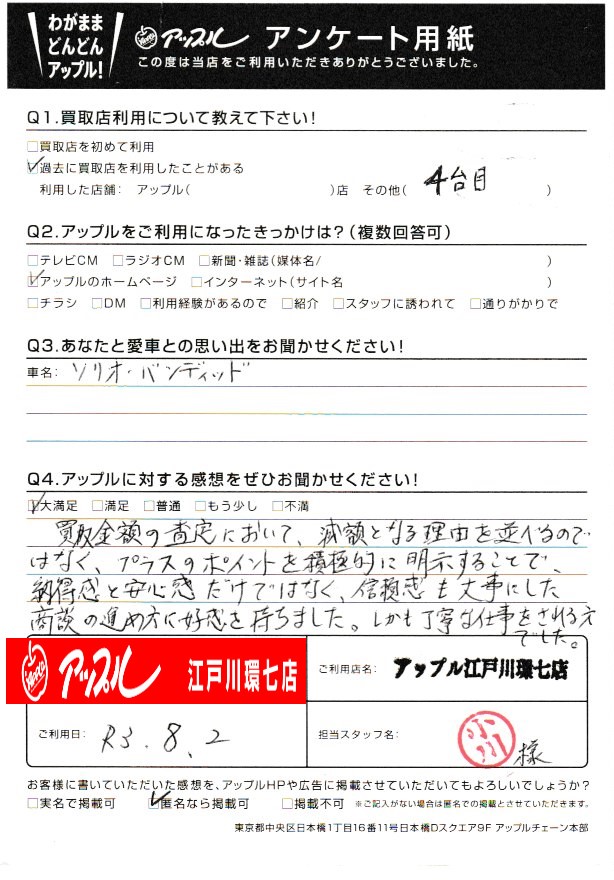 わがまま
どんどん
アップル!
アップル アンケート用紙
この度は当店をご利用いただきありがとうございました。
Q1.買取店利用について教えて下さい!
□買取店を初めて利用
☑過去に買取店を利用したことがある
利用した店舗: アップル( )店 その他( 4台目 )
Q2.アップルをご利用になったきっかけは?(複数回答可)
□テレビCM □ラジオCM □新聞・雑誌(媒体名/ )
☑アップルのホームページ □インターネット(サイト名 )
□チラシ □DM □利用経験があるので □紹介 □スタッフに誘われて □通りがかりで
Q3.あなたと愛車との思い出をお聞かせください!
車名: ソリオ・バンディッド
Q4.アップルに対する感想をぜひお聞かせください!
☑大満足 □満足 □普通 □もう少し □不満
買取金額の査定において、減額となる理由を並べるので
はなく、プラスのポイントを積極的に明示することで、
納得感と安心感だけではなく、信頼感も大事にした
商談の進め方に好感を持ちました。しかも丁寧な仕事をされる方
でした。
アップル 江戸川環七店
ご利用店名: アップル江戸川環七店
ご利用日: R3.8.2
担当スタッフ名: 小川 様
お客様に書いていただいた感想を、アップルHPや広告に掲載させていただいてもよろしいでしょうか?
□実名で掲載可 ☑匿名なら掲載可 □掲載不可 ※ご記入がない場合は匿名での掲載とさせていただきます。
東京都中央区日本橋1丁目16番11号日本橋Dスクエア9F アップルチェーン本部